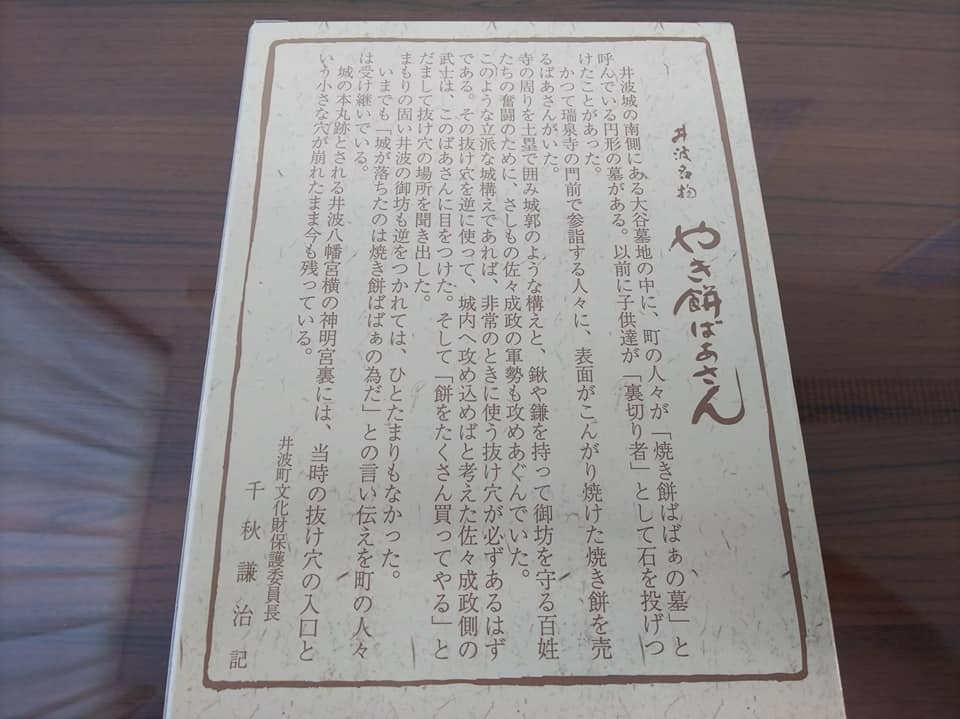 井波名物
やき餅ばあさん
井波城の南側にある大谷墓地の中に、町の人々が「焼き餅ばばぁの墓」と
呼んでいる円形の墓がある。以前に子供達が「裏切り者」として石を投げつ
けたことがあった。
かつて瑞泉寺の門前で参詣する人々に、表面がこんがり焼けた焼き餅を売
るばあさんがいた。
寺の周りを土塁で囲み城郭のような構えと、鍬や鎌を持って御坊を守る百姓
たちの奮闘のために、さしもの佐々成政の軍勢も攻めあぐんでいた。
このような立派な城構えであれば、非常のときに使う抜け穴が必ずあるはず
である。その抜け穴を逆に使って、城内へ攻め込めばと考えた佐々成政側の
武士は、このばあさんに目をつけた。そして「餅をたくさん買ってやる」と
だまして抜け穴の場所を聞き出した。
まもりの固い井波の御坊も逆をつかれては、ひとたまりもなかった。
いまでも「城が落ちたのは焼き餅ばばぁの為だ」との言い伝えを町の人々
は受け継いでいる。
城の本丸跡とされる井波八幡宮横の神明宮裏には、当時の抜け穴の入口と
いう小さな穴が崩れたまま今も残っている。
井波町文化財保護委員長
千秋謙治 記